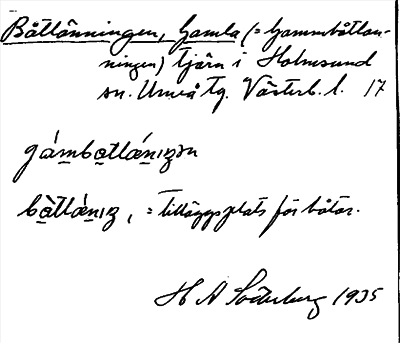 Båtlänningen, Gamla (= Gammbåtlän-
ningen) tjärn i Holmsund
sn. Umeå tg. Västerb. l. 17
gámbatlánıŋən
bàtlánıŋ, = tilläggsplats för båtar.
H A Söderberg 1935